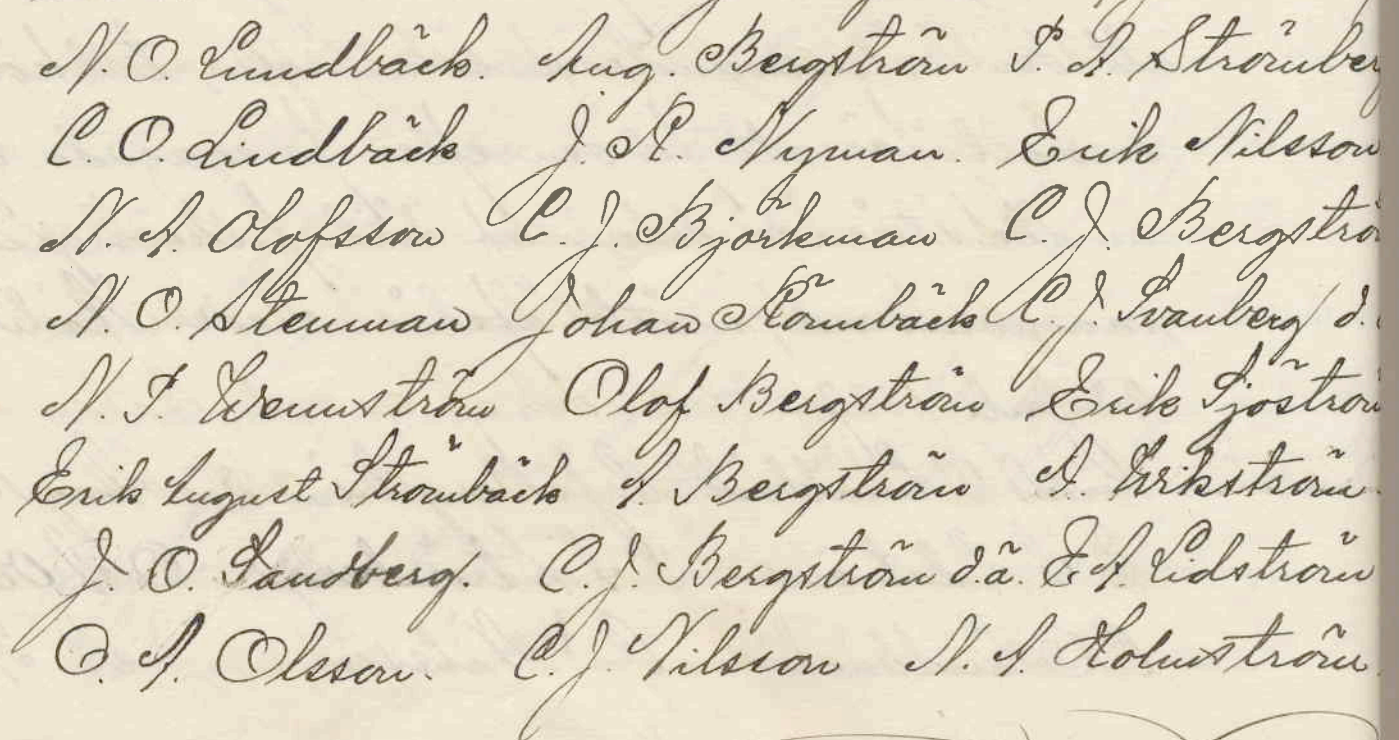 N. O. Lundbäck. Aug. Bergström P. A. Strömber
C. O. Lindbäck J. R. Nyman. Erik Nilsson
N. A. Olofsson C. J. Björkman C. J. Bergströ
N. O. Stenman Johan Rörnbäck C. J. Svanberg d.
N. P. Wennström Olof Bergström Erik Sjöström
Erik August Strömbäck A. Bergström A. Wikström
J. O. Sandberg. C. J. Bergström d.ä. E A. Lidström
O. A. Olsson. C. J. Nilsson N. A. Holmström.